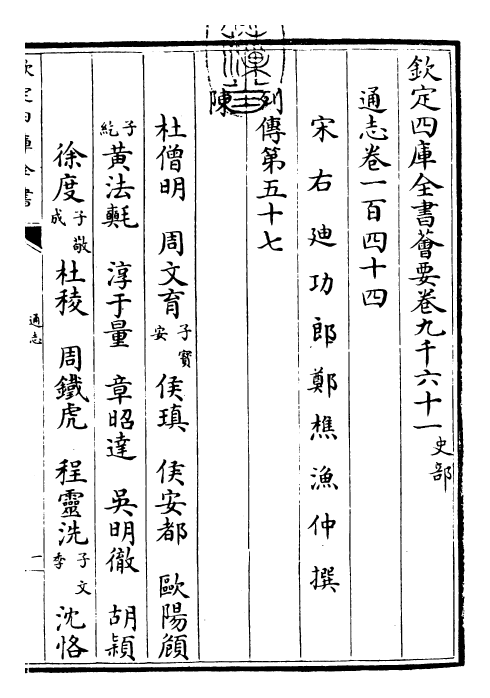 欽定四庫全書薈要卷九千六十一史部
通志卷一百四十四
宋右迪功郎鄭樵漁仲撰
列傳第五十七
陳
杜僧明 周文育子寳安 侯瑱 侯安都 歐陽頠
子紇 黄法𣰰 淳于量 章昭達 吳明徹 胡穎
徐度子敬成 杜稜 周鐵虎 程靈洗子文季 沈恪
欽定四庫全書
通志
一